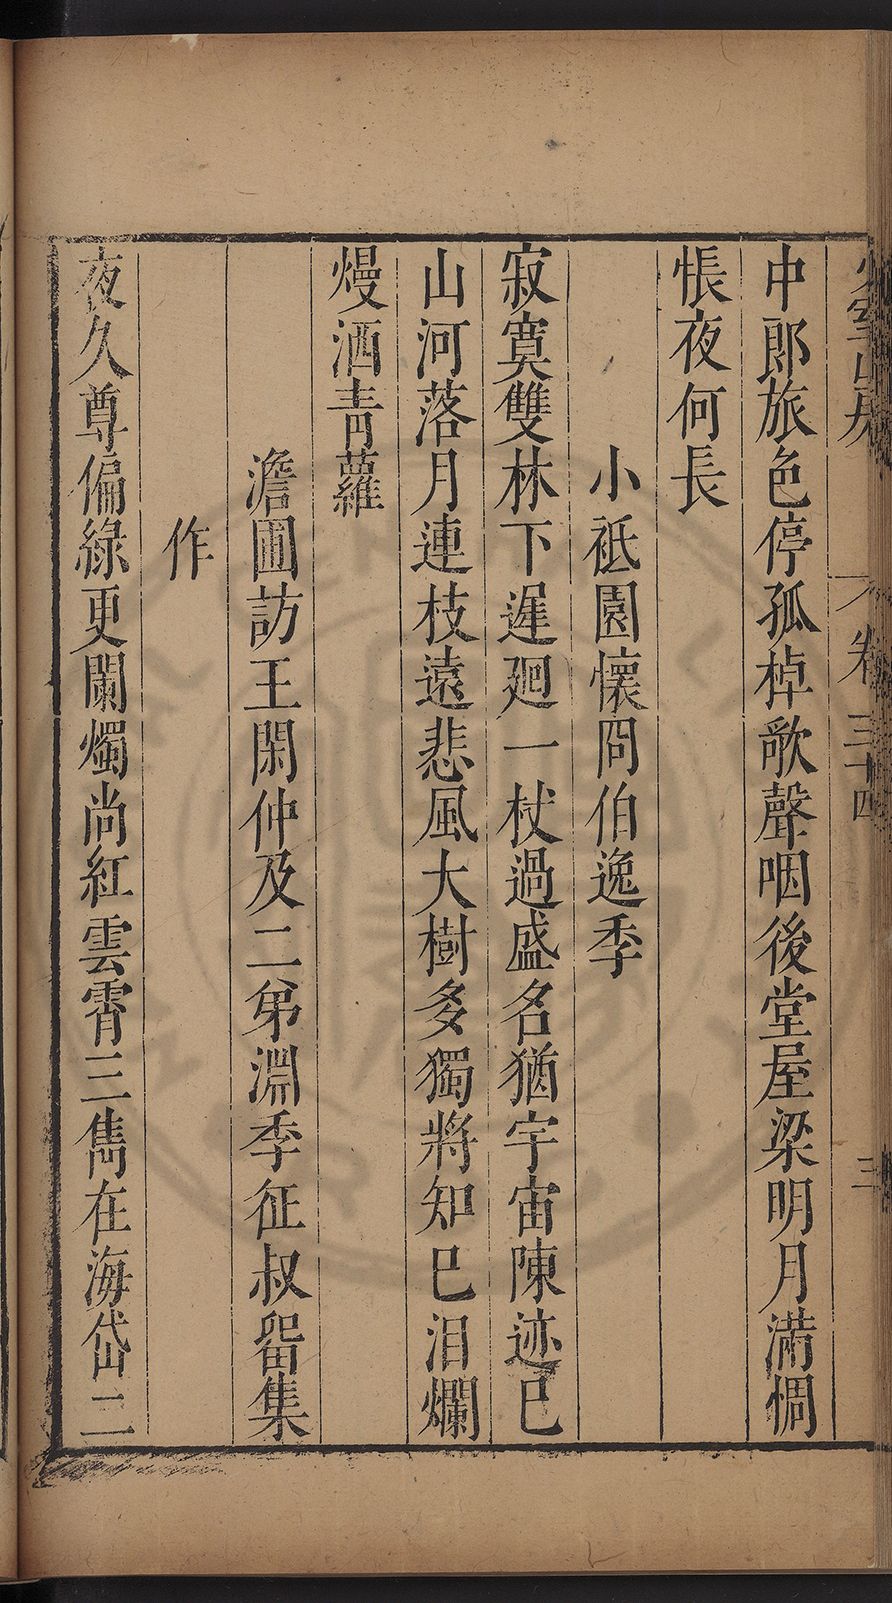 少室山房 卷三十四 三
中郎旅色停孤棹歌聲咽後堂屋梁明月滿惆
悵夜何長
小祗園懷冏伯逸季
寂寞雙林下遲廻一杖過盛名猶宇宙陳迹已
山河落月連枝遠悲風大樹多獨將知已泪爛
熳洒青蘿
澹圃訪王閑仲及二弟淵季征叔留集
作
夜久尊偏綠更闌燭尚紅雲霄三雋在海岱二